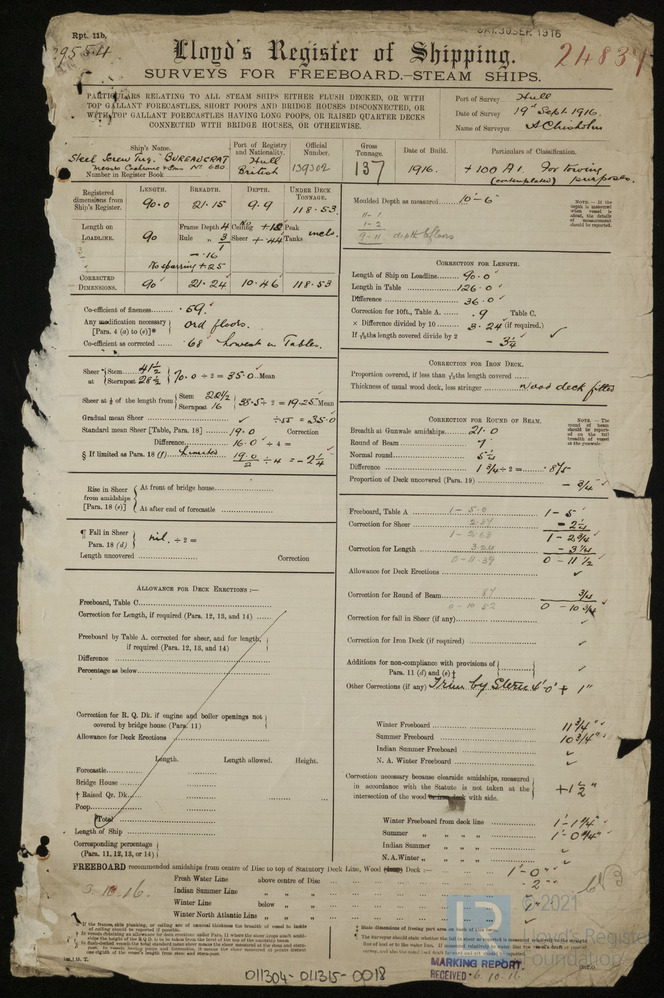 Rpt. 11b.
SEP. 1916
Lloyd's Register of Shipping.
SURVEYS FOR FREEBOARD.—STEAM SHIPS.
PARTICULARS RELATING TO ALL STEAM SHIPS EITHER FLUSH DECKED, OR WITH
TOP GALLANT FORECASTLES, SHORT POOPS AND BRIDGE HOUSES DISCONNECTED, OR
WITH TOP GALLANT FORECASTLES HAVING LONG POOPS, OR RAISED QUARTER DECKS
CONNECTED WITH BRIDGE HOUSES, OR OTHERWISE.
Port of Survey Hull
Date of Survey 19th Sept 1916.
Name of Surveyor A Chisholm
Ship's Name. Port of Registry and Nationality. Official Number. Gross Tonnage. Date of Build. Particulars of Classification.
Steel Screw Tug. "BUREAUCRAT" Hull British 139302 137 1916. +100 A1. For towing purposes.
(contemplated)
Number in Register Book
Registered dimensions from Ship's Register. LENGTH. BREADTH. DEPTH. UNDER DECK TONNAGE.
90.0 21.15 9.9 118.53
Length on LOADLINE. 90 Frame Depth 4 Rule 3 Ceiling Sheer +.44 Peak Tanks incl.
No sparring +.25
CORRECTED DIMENSIONS. 90 21.24 10.46 118.53
Moulded Depth as measured 10'-6"
NOTE.—If the depth is measured when vessel is afloat, the details of measurement should be reported.
Co-efficient of fineness .59
Any modification necessary [Para. 4 (a) to (e)]* Ord floors.
Co-efficient as corrected .68 Lowest in Tables.
Sheer at Stem 41½ Sternpost 28½ 70.0 ÷ 2 = 35.0 Mean
Sheer at ⅛ of the length from Stem 22½ Sternpost 16 38.5 ÷ 2 = 19.25 Mean
Gradual mean Sheer ÷.55 = 35.0
Standard mean Sheer [Table, Para. 18] 19.0 Correction
Difference 16.0 ÷ 4 =
§ If limited as Para. 18 (f) Limited 19.0/2 ÷ 4 = -2¼
Rise in Sheer from amidships [Para. 18 (e)] At front of bridge house
At after end of forecastle
¶ Fall in Sheer Para. 18 (d) nil. ÷ 2 =
Length uncovered Correction
ALLOWANCE FOR DECK ERECTIONS:—
Freeboard, Table C
Correction for Length, if required (Para. 12, 13, and 14)
Freeboard by Table A. corrected for sheer, and for length, if required (Para. 12, 13, and 14)
Difference
Percentage as below
Correction for R. Q. Dk. if engine and boiler openings not covered by bridge house (Para. 11)
Allowance for Deck Erections
Length. Length allowed. Height.
Forecastle
Bridge House
† Raised Qr. Dk.
Poop
Total
Length of Ship
Corresponding percentage (Para. 11, 12, 13, or 14)
CORRECTION FOR LENGTH.
Length of Ship on Loadline 90.0
Length in Table 126.0
Difference 36.0
Correction for 10ft., Table A. .9 Table C.
× Difference divided by 10 3.24 (if required.)
If 6/10ths length covered divide by 2 -3¼
CORRECTION FOR IRON DECK.
Proportion covered, if less than 7/10ths length covered
Thickness of usual wood deck, less stringer Wood deck fitted
CORRECTION FOR ROUND OF BEAM.
Breadth at Gunwale amidships 21.0
Round of Beam 7
Normal round 5¼
Difference 1¾ ÷ 2 = .875
Proportion of Deck uncovered (Para. 19) -¾
NOTE.—The round of beam should be reported on the full breadth of vessel at the gunwale.
Freeboard, Table A 1-5.0 1-5
Correction for Sheer -2¼
1-2¾
Correction for Length 3.24 -3¼
0-11½
Allowance for Deck Erections
Correction for Round of Beam .87 ¾
0-10¾
Correction for fall in Sheer (if any)
Correction for Iron Deck (if required)
Additions for non-compliance with provisions of Para. 11 (d) and (e) ‡
Other Corrections (if any) Trim by Stern 4'-0" +1"
Winter Freeboard 11¾"
Summer Freeboard 10¾"
Indian Summer Freeboard
N. A. Winter Freeboard
Correction necessary because clearside amidships, measured in accordance with the Statute is not taken at the intersection of the wood deck with side. +1½"
Winter Freeboard from deck line 1'-1¼"
Summer " " " " 1'-0¼"
Indian Summer " " "
N.A. Winter " " "
FREEBOARD recommended amidships from centre of Disc to top of Statutory Deck Line, Wood Deck:— 1'-0"
Fresh Water Line above centre of Disc 2"
Indian Summer Line " "
Winter Line below "
Winter North Atlantic Line " "
5.10.16.
MARKING REPORT.
RECEIVED 6.10.16
© 2021
Lloyd's Register
Foundation
011304-011315-0018